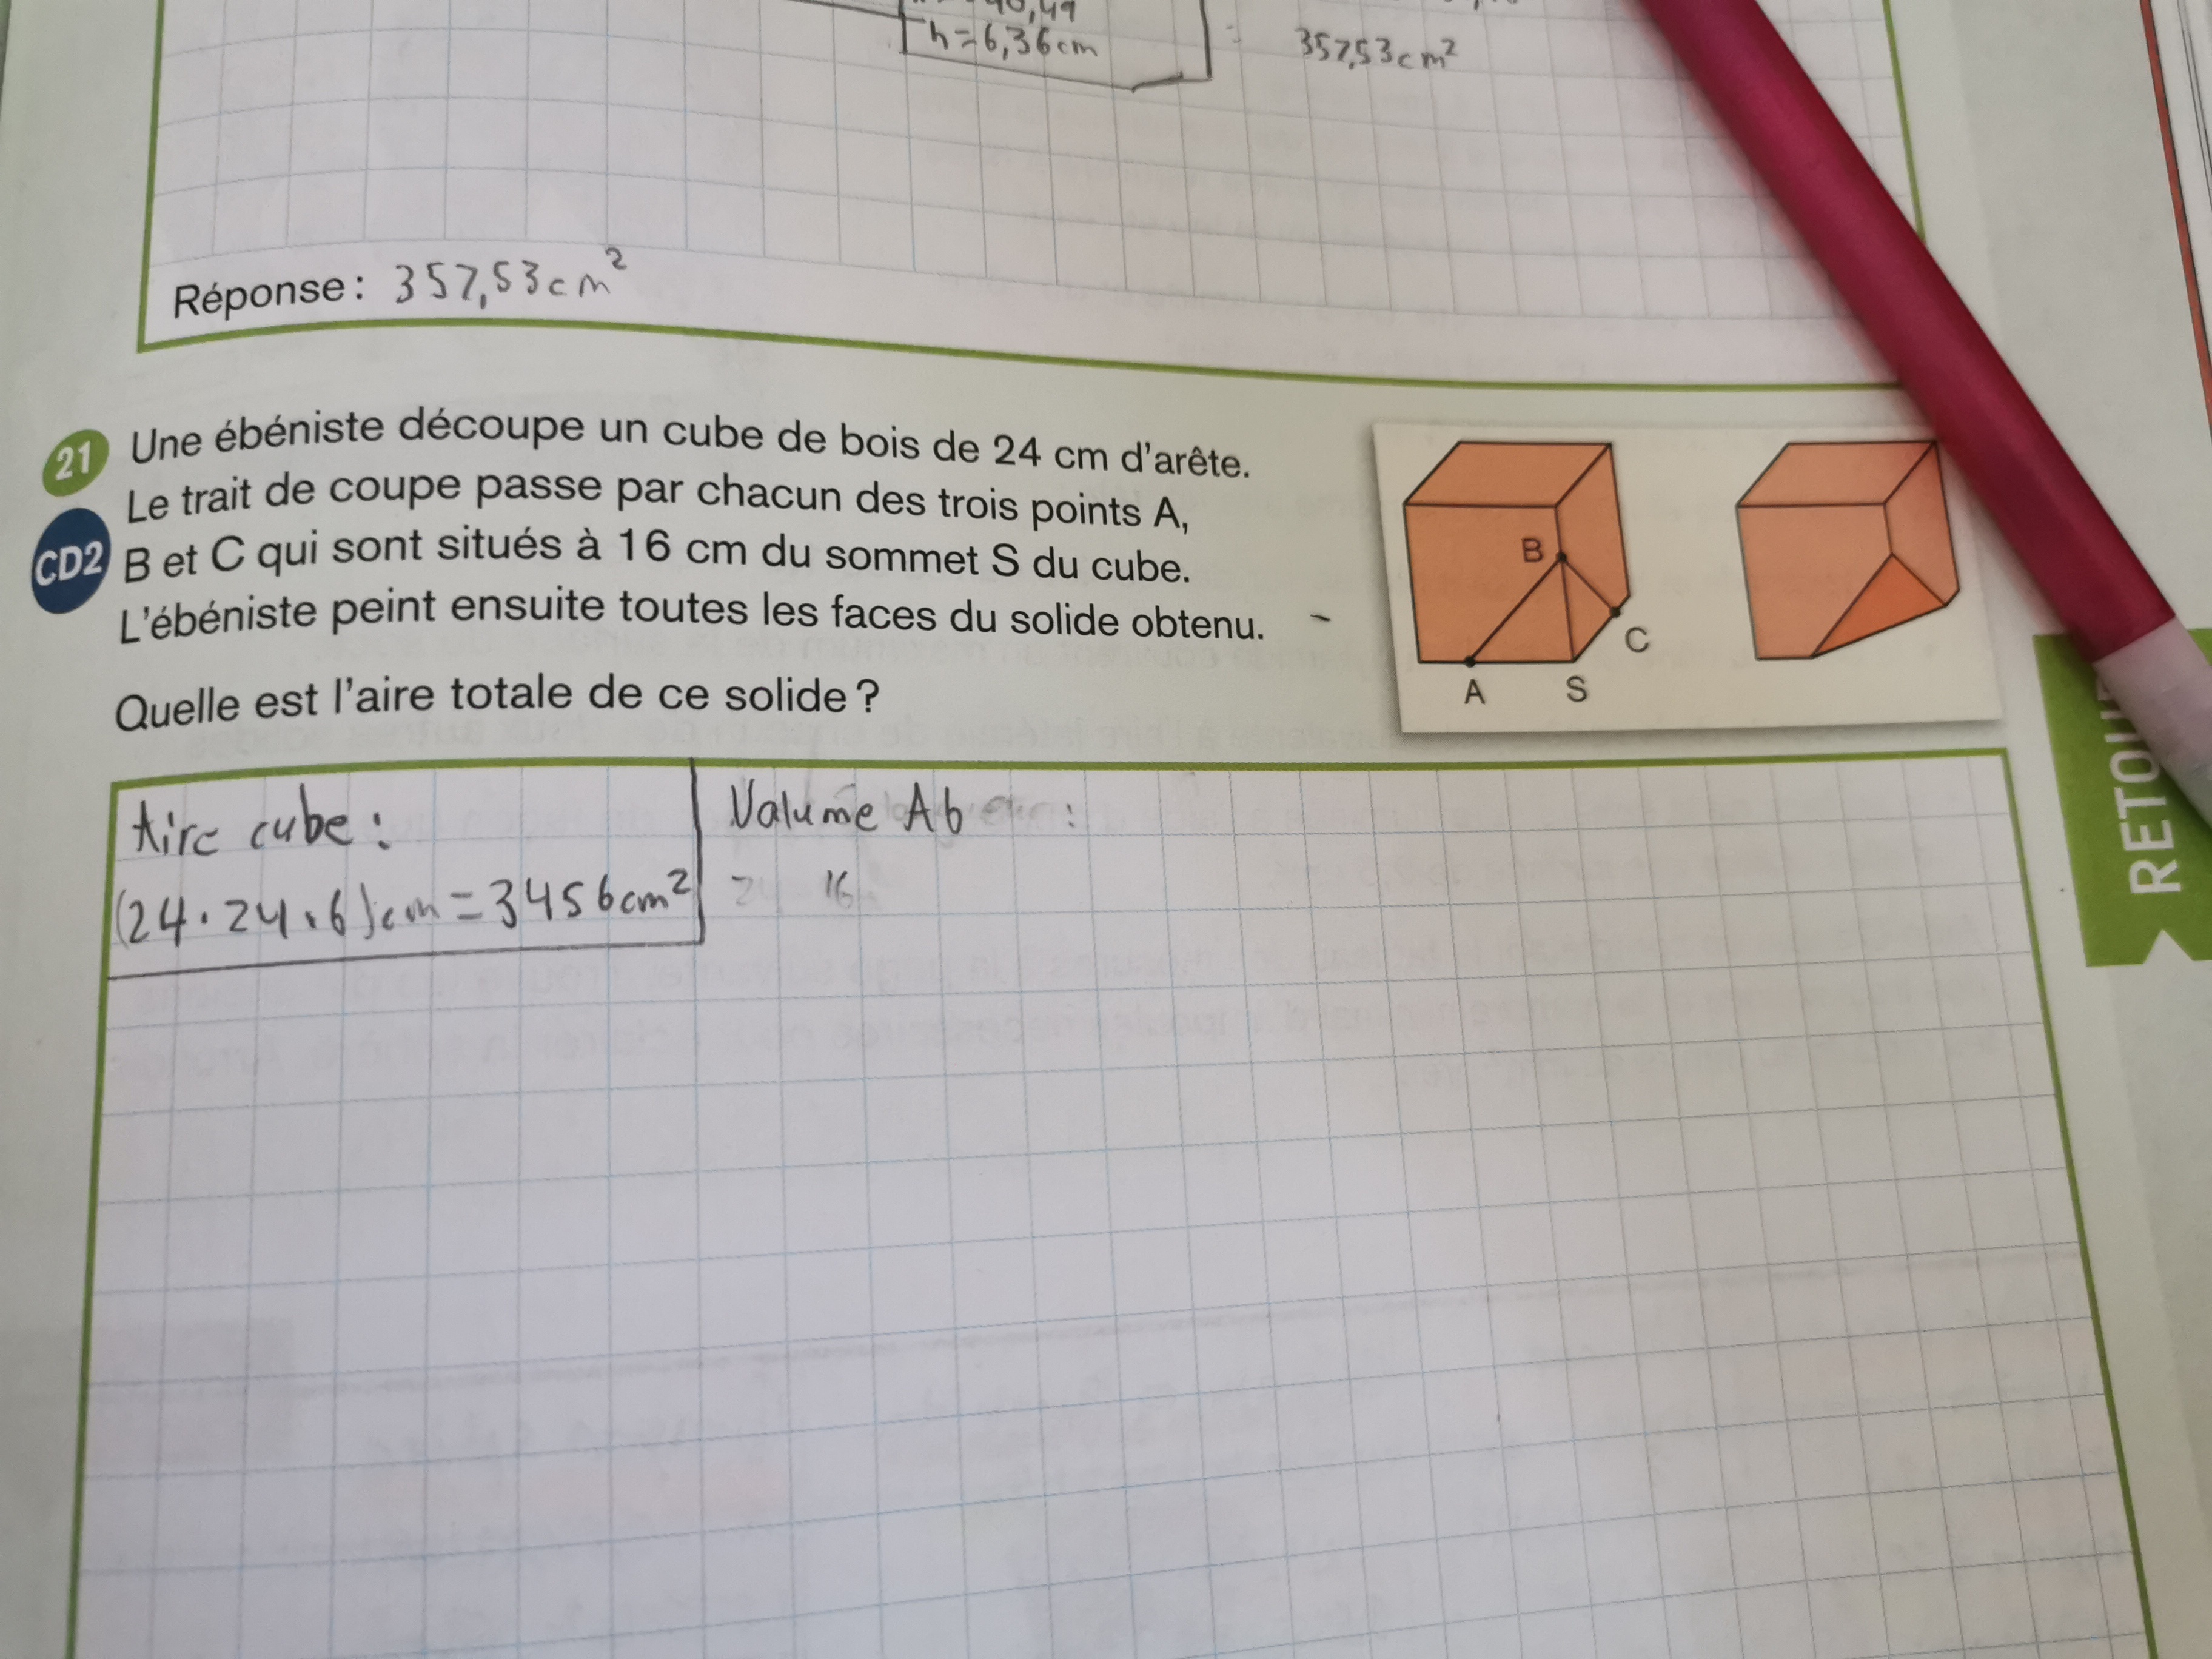 h=6,36cm
357,53cm²
Réponse: 357,53cm²
21 Une ébéniste découpe un cube de bois de 24 cm d'arête.
Le trait de coupe passe par chacun des trois points A,
CD2 B et C qui sont situés à 16 cm du sommet S du cube.
L'ébéniste peint ensuite toutes les faces du solide obtenu.
Quelle est l'aire totale de ce solide ?
B
C
A
S
Aire cube:
(24·24·6)cm=3456cm²
Valume Ab
:
= 16